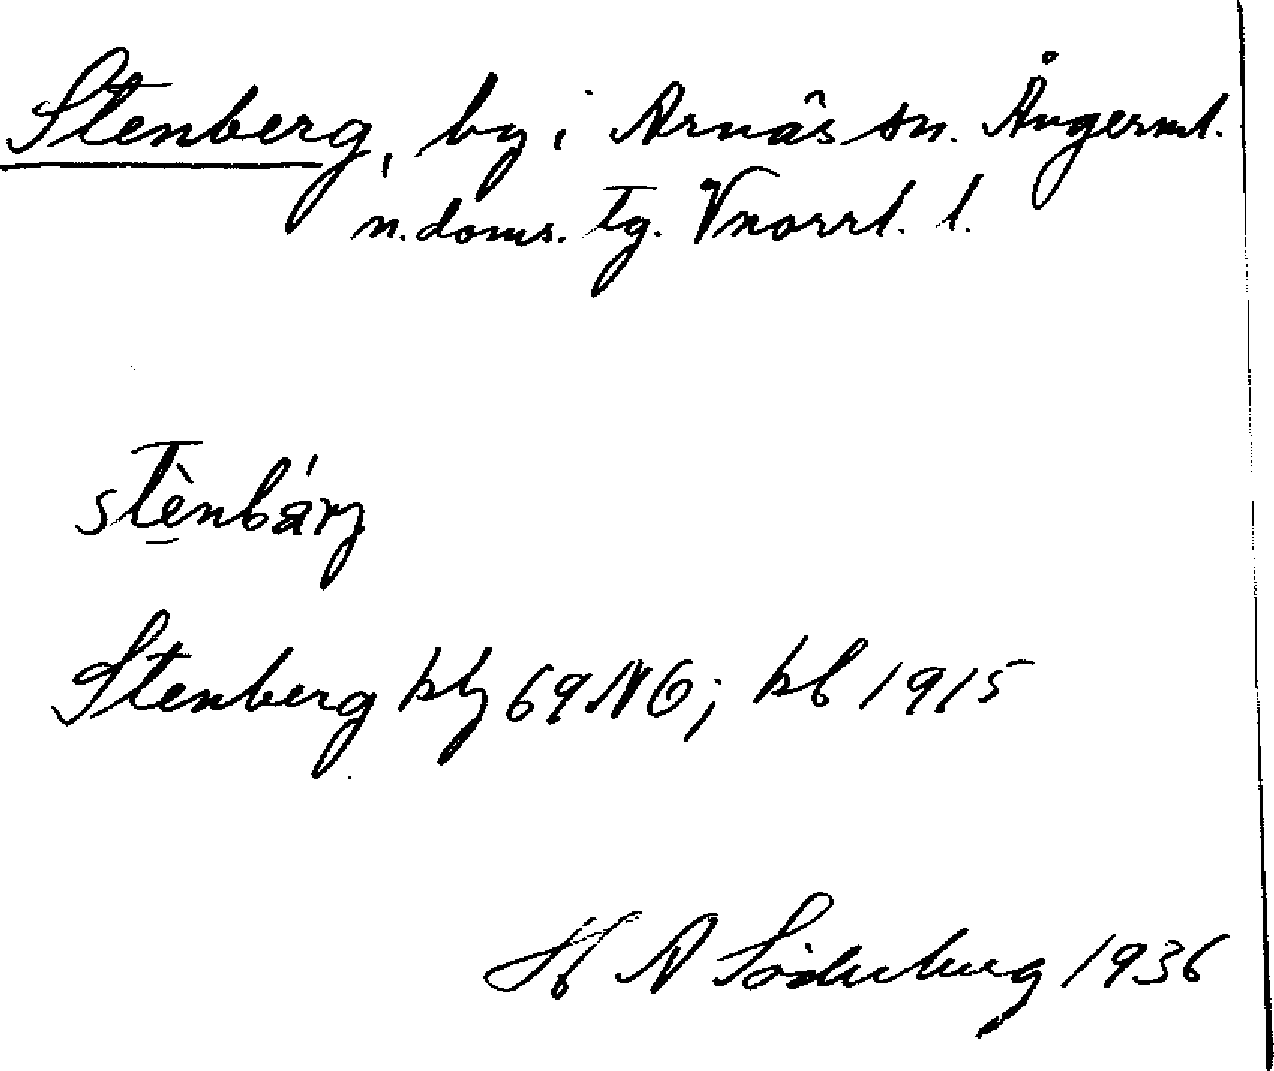 Stenberg, by i Arnäs sn. Ångerml.
n. doms. tg. Vnorrl. l.
stènbárj
Stenberg kbl 69 NÖ; kb 1915
H A Söderberg 1936